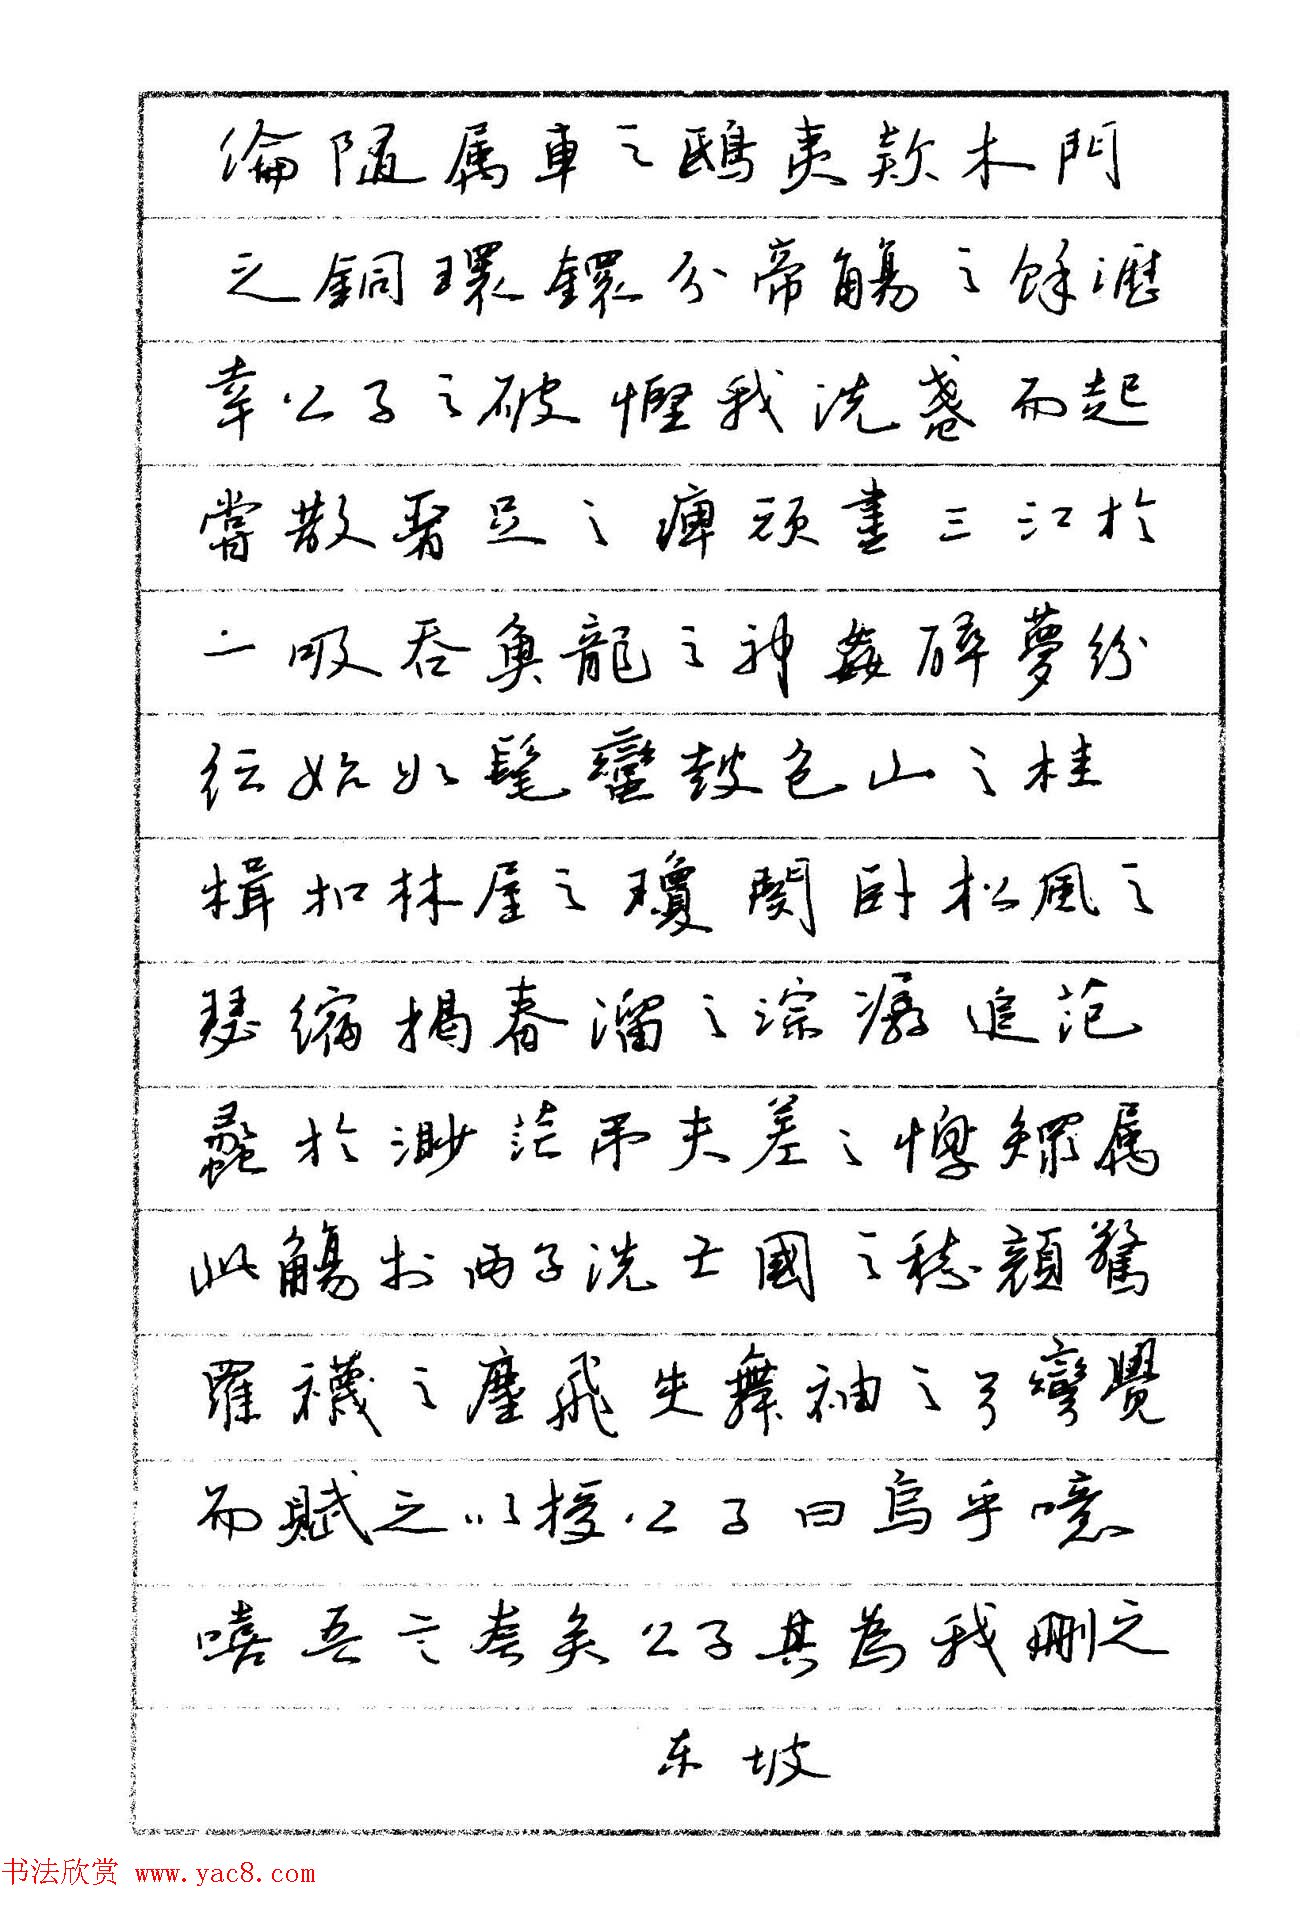 綸隨属車之鴟夷欵木門
之銅環鐶分帝觴之餘瀝
幸公子之破慳我洗盞而起
嘗散腎足之痺頑盡三江於
一吸吞魚龍之神姦醉夢紛
紜始如髦蠻鼓包山之桂
楫扣林屋之瓊関卧松風之
瑟縮揭春溜之淙潺追范
蠡於渺茫吊夫差之惸鰥属
此觴於西子洗亡國之愁顔驚
羅襪之塵飛失舞袖之弓彎覺
而賦之以授公子曰烏乎噫
嘻吾言夸矣公子其為我刪之
东坡
书法欣赏 www.yac8.com